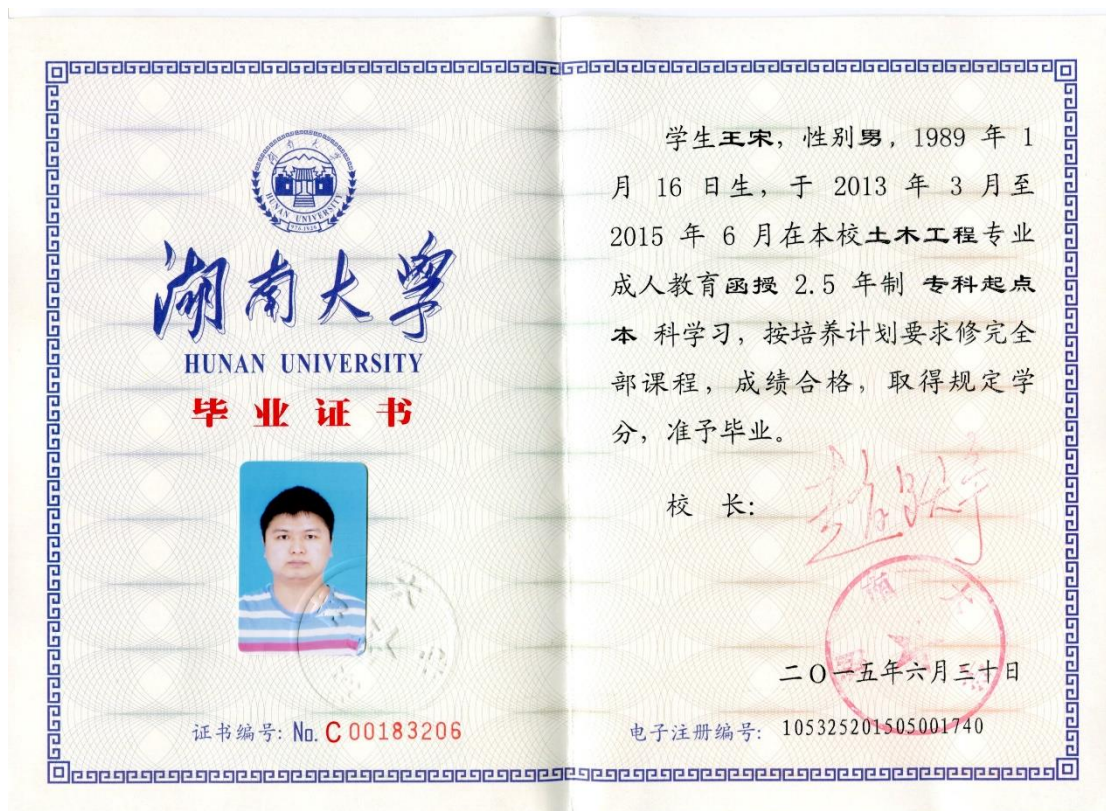 湖南大学
HUNAN UNIVERSITY
湖南大学
HUNAN UNIVERSITY
毕业证书
证书编号: No. C 00183206
学生王宋，性别男，1989 年 1
月 16 日生，于 2013 年 3 月至
2015 年 6 月在本校土木工程专业
成人教育函授 2.5 年制 专科起点
本 科学习，按培养计划要求修完全
部课程，成绩合格，取得规定学
分，准予毕业。
校 长:
赵跃宇
二〇一五年六月三十日
电子注册编号: 105325201505001740